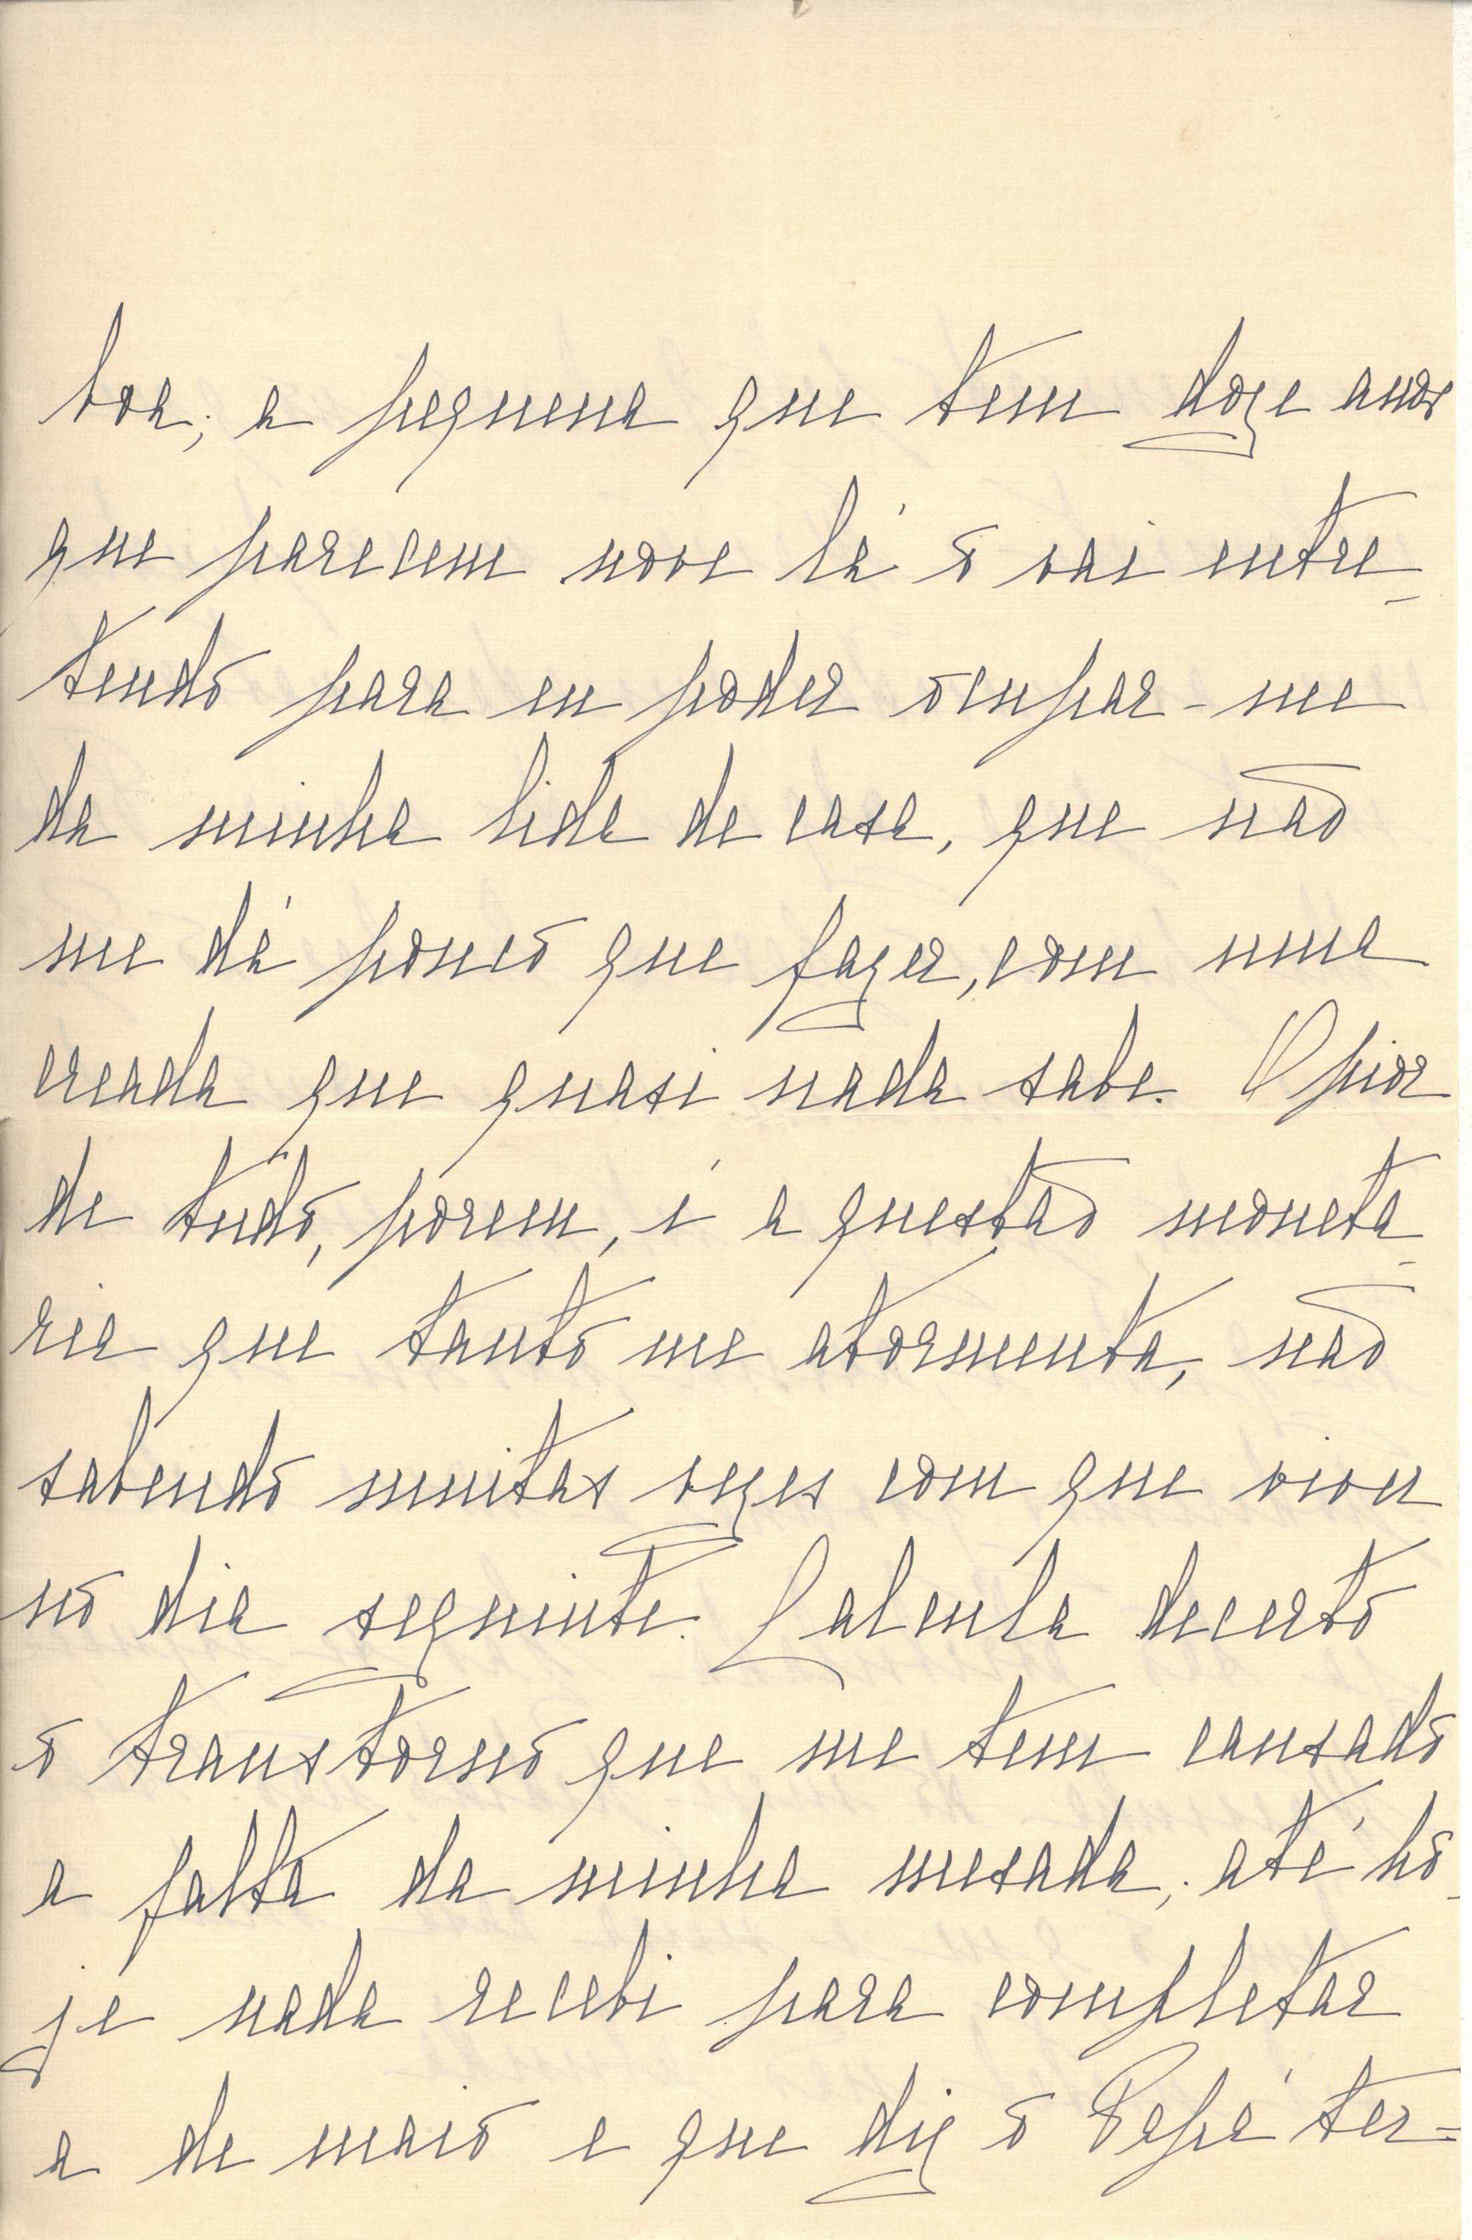 boa; a pequena que tem doze anos
que parecem nove lá o vai entre-
tendo para eu poder ocupar-me
da minha lida de casa, que não
me dá pouco que fazer, com uma
creada que quasi nada sabe. O pior
de tudo, porem, é a questão moneta-
ria que tanto me atormenta, não
sabendo muitas vezes com que viver
no dia seguinte. Calcula decerto
o transtorno que me tem causado
a falta da minha mesada; até ho-
je nada recebi para completar
a de maio e que diz o Papá ter=